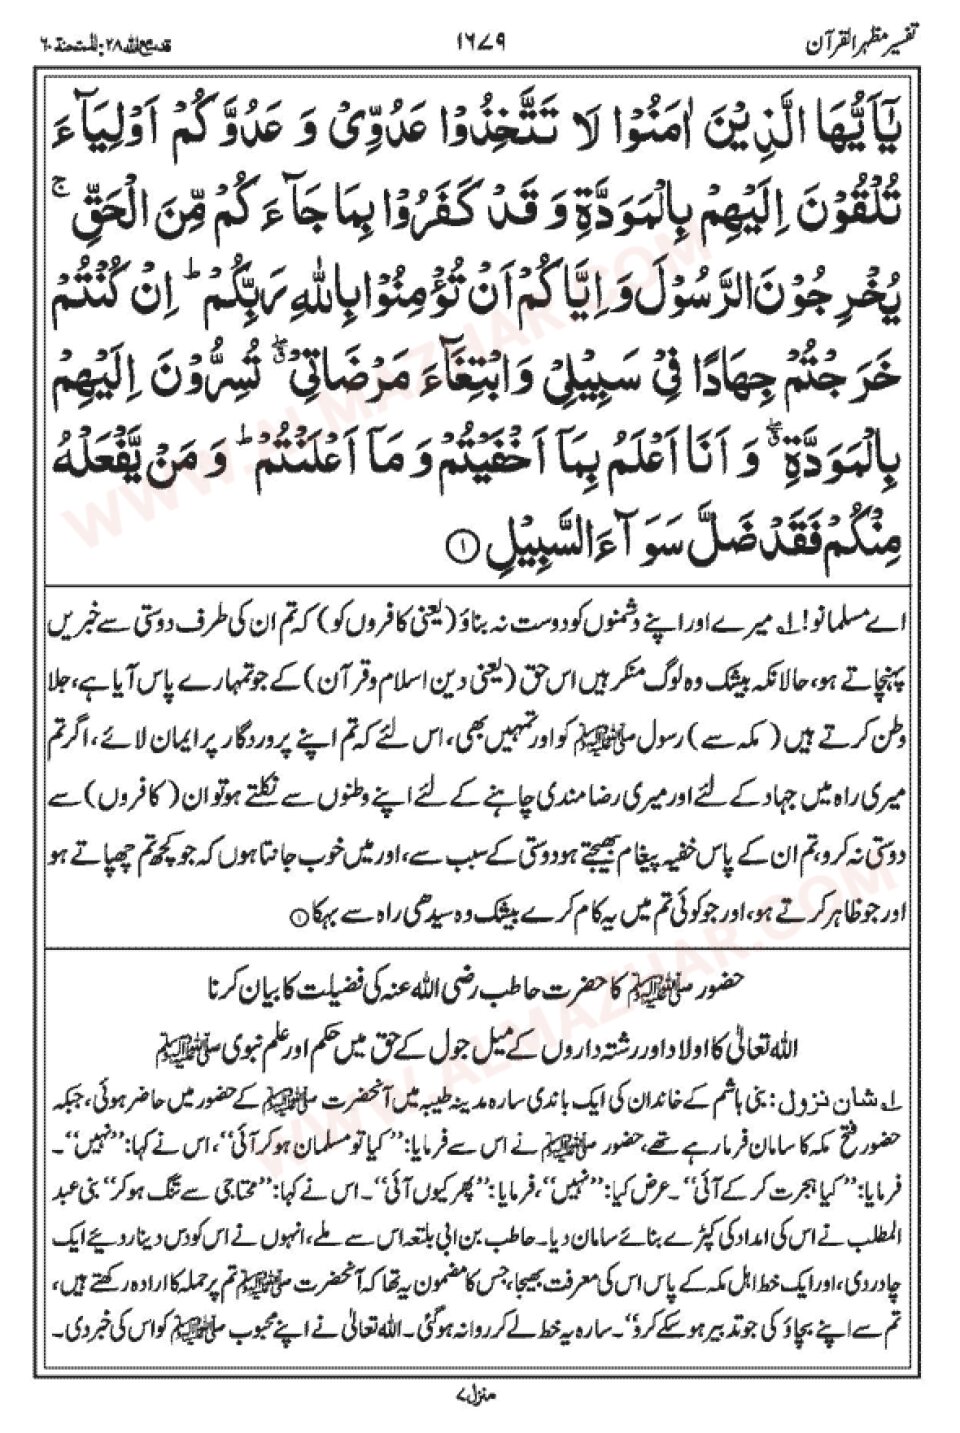 تفسیر مظہر القرآن
١٦٧٩
قد سمع اللہ ٢٨: الممتحنة ٦٠
يٰٓاَيُّهَا الَّذِيْنَ اٰمَنُوْا لَا تَتَّخِذُوْا عَدُوِّيْ وَ عَدُوَّكُمْ اَوْلِيَآءَ
تُلْقُوْنَ اِلَيْهِمْ بِالْمَوَدَّةِ وَ قَدْ كَفَرُوْا بِمَا جَآءَ كُمْ مِّنَ الْحَقِّ ۚ
يُخْرِجُوْنَ الرَّسُوْلَ وَ اِيَّاكُمْ اَنْ تُؤْمِنُوْا بِاللّٰهِ رَبِّكُمْ ؕ اِنْ كُنْتُمْ
خَرَجْتُمْ جِهَادًا فِيْ سَبِيْلِيْ وَ ابْتِغَآءَ مَرْضَاتِيْ ۖۗ تُسِرُّوْنَ اِلَيْهِمْ
بِالْمَوَدَّةِ ۖۗ وَ اَنَا اَعْلَمُ بِمَآ اَخْفَيْتُمْ وَ مَآ اَعْلَنْتُمْ ؕ وَ مَنْ يَّفْعَلْهُ
مِنْكُمْ فَقَدْ ضَلَّ سَوَآءَ السَّبِيْلِ ①
اے مسلمانو! ۱؎ میرے اور اپنے دشمنوں کو دوست نہ بناؤ (یعنی کافروں کو) کہ تم ان کی طرف دوستی سے خبریں
پہنچاتے ہو، حالانکہ بیشک وہ لوگ منکر ہیں اس حق (یعنی دین اسلام و قرآن) کے جو تمہارے پاس آیا ہے، جلا
وطن کرتے ہیں (مکہ سے) رسول ﷺ کو اور تمہیں بھی، اس لئے کہ تم اپنے پروردگار پر ایمان لائے، اگر تم
میری راہ میں جہاد کے لئے اور میری رضا مندی چاہنے کے لئے اپنے وطنوں سے نکلتے ہو تو ان (کافروں) سے
دوستی نہ کرو، تم ان کے پاس خفیہ پیغام بھیجتے ہو دوستی کے سبب سے، اور میں خوب جانتا ہوں کہ جو کچھ تم چھپاتے ہو
اور جو ظاہر کرتے ہو، اور جو کوئی تم میں یہ کام کرے بیشک وہ سیدھی راہ سے بہکا ①
حضور ﷺ کا حضرت حاطب رضی اللہ عنہ کی فضیلت کا بیان کرنا
اللہ تعالیٰ کا اولاد اور رشتہ داروں کے میل جول کے حق میں حکم اور علم نبوی ﷺ
۱؎ شان نزول: بنی ہاشم کے خاندان کی ایک باندی سارہ مدینہ طیبہ میں آنحضرت ﷺ کے حضور میں حاضر ہوئی، جبکہ
حضور فتح مکہ کا سامان فرما رہے تھے، حضور ﷺ نے اس سے فرمایا: ‘‘کیا تو مسلمان ہو کر آئی’’، اس نے کہا: ‘‘نہیں’’۔
فرمایا: ‘‘کیا ہجرت کر کے آئی’’۔ عرض کیا: ‘‘نہیں’’، فرمایا: ‘‘پھر کیوں آئی’’۔ اس نے کہا: ‘‘محتاجی سے تنگ ہو کر’’ بنی عبد
المطلب نے اس کی امداد کی کپڑے بنائے سامان دیا۔ حاطب بن ابی بلتعہ اس سے ملے، انہوں نے اس کو دس دینار دیئے ایک
چادر دی، اور ایک خط اہل مکہ کے پاس اس کی معرفت بھیجا، جس کا مضمون یہ تھا کہ آنحضرت ﷺ تم پر حملہ کا ارادہ رکھتے ہیں،
تم سے اپنے بچاؤ کی جو تدبیر ہو سکے کرو’’۔ سارہ یہ خط لے کر روانہ ہو گئی۔ اللہ تعالیٰ نے اپنے محبوب ﷺ کو اس کی خبر دی۔
منزل ۷
WWW.ALMAZHAR.COM
WWW.ALMAZHAR.COM